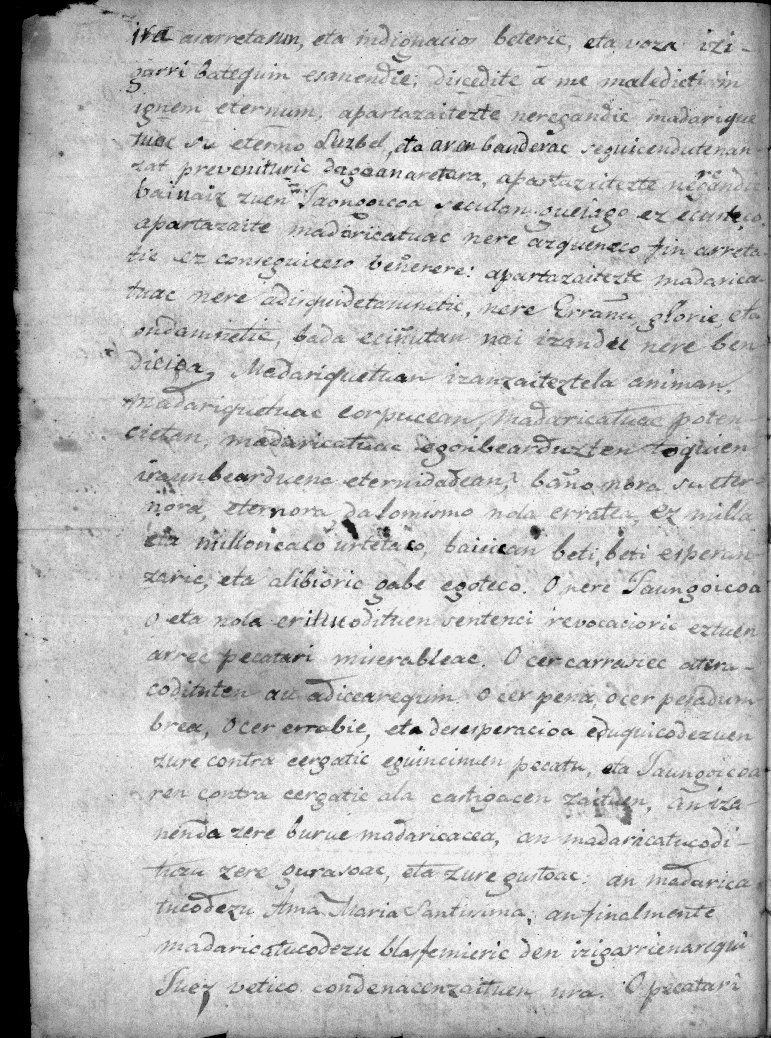 ira asarretasun, eta indignacios beteric, eta voza izi-
garri batequim esanendie; discedite à me maledicti in
ignem eternum; apartazaitezte neregandic madarique
tuac su eterno Luzbel, eta aren banderac seguicendutenan-
zat prevenituric dagoanaretara, apartazaitezte neregandic
bainaiz zuen Jaongoicoa
apartazaite madaricatuac nere azqueneco fin arreta-
tic ez conseguiceco beñerere: apartazaitezte madarica-
tuac nere adisquidetasunetic, nere Errañu glorie, eta
ondasunetic, bada eciñutan nai izandu nere ben
dicioa, Madariquetuan izanzaiteztela animan,
madariquetuac corpucean, madaricatuac poten-
cietan, madaricatuac egonbearduzten toquien
iraunbeardueno eternidadean, baño nora su eter-
nora, eternora, dalomismo nola erratea, ez milla
eta milloneaco urtetaco, baicican beti, beti esperan-
zaric, eta alibioric gabe egoteco. O nere Jaungoicoa
o eta nola ventenci revocacioric eztuen
arrec pecatari miserableac. O cer carrasiec atera-
codituten au adicearequin. o cer pena, o cer pesadum
brea, o cer errabie, eta desesperacioa eduquicodezuen
zure contra cergatic eguincinuen pecatu, eta Jaungoicoa
ren contra cergatic ala castigacen zaituen, an iza
nenda zere burue madaricacea, an madaricatucodi-
tuzu zere gurasoac, eta zure gustoac: an madarica
tucodezu Ama Maria Santisima; an finalmente
madaricatucodezu blasfemieric den izigarrienarequi
Juez vetico condenacenzaituen ura. O pecatari